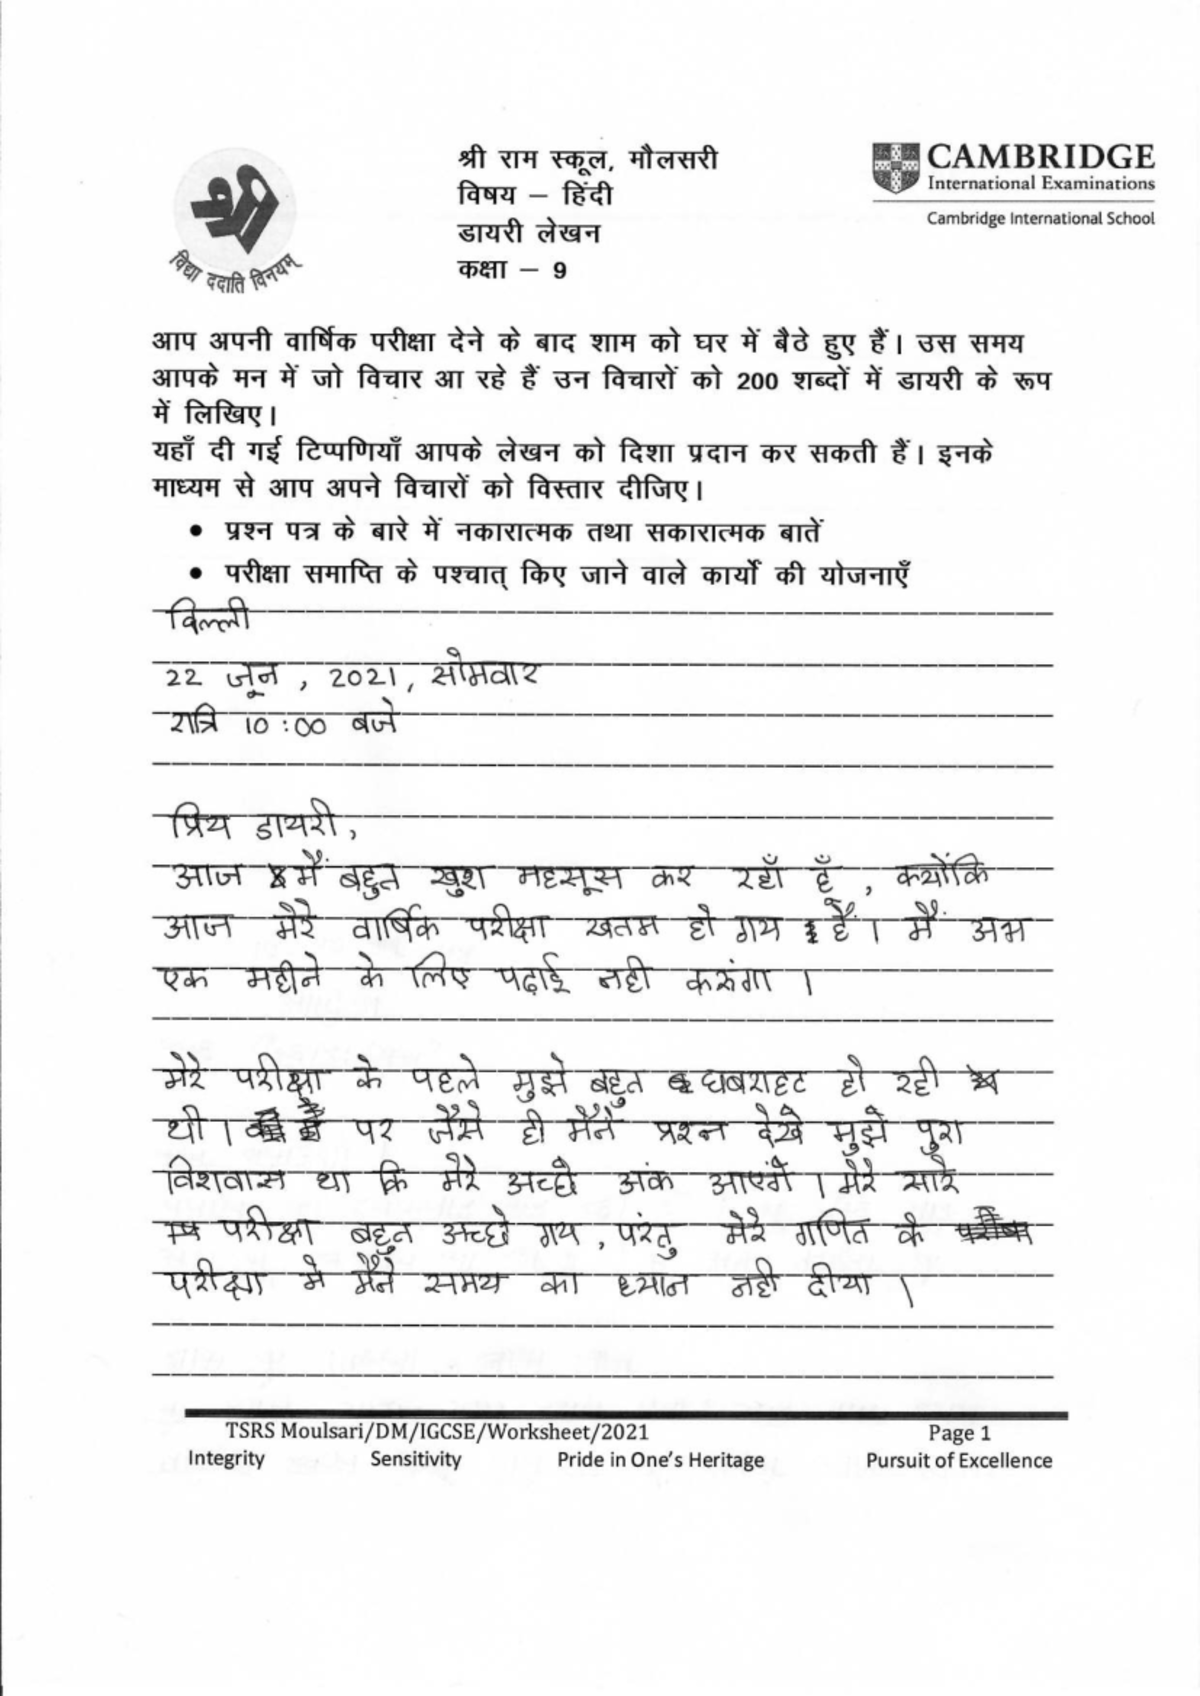 श्री राम स्कूल, मौलसरी
विषय – हिंदी
डायरी लेखन
कक्षा – 9
विद्या ददाति विनयम्
CAMBRIDGE
International Examinations
Cambridge International School
आप अपनी वार्षिक परीक्षा देने के बाद शाम को घर में बैठे हुए हैं। उस समय
आपके मन में जो विचार आ रहे हैं उन विचारों को 200 शब्दों में डायरी के रूप
में लिखिए।
यहाँ दी गई टिप्पणियाँ आपके लेखन को दिशा प्रदान कर सकती हैं। इनके
माध्यम से आप अपने विचारों को विस्तार दीजिए।
• प्रश्न पत्र के बारे में नकारात्मक तथा सकारात्मक बातें
• परीक्षा समाप्ति के पश्चात् किए जाने वाले कार्यों की योजनाएँ
22 जून , 2021, सोमवार
रात्रि 10:00 बजे
प्रिय डायरी,
आज मैं बहुत खुश महसूस कर रहाँ हूँ , क्योंकि
आज मेरे वार्षिक परीक्षा खतम हो गय हैं । मैं अभ
एक महीने के लिए पढ़ाई नही करुंगा ।
मेरे परीक्षा के पहले मुझे बहुत घबराहट हो रही
थी । पर जैसे ही मैंने प्रश्न देखे मुझे पुरा
विशवास था कि मेरे अच्छे अंक आएंगे । मेरे सारे
परीक्षा बहुत अच्छे गय , परंतु मेरे गणित के
परीक्षा मे मैंने समय का ध्यान नही दीया ।
TSRS Moulsari/DM/IGCSE/Worksheet/2021 Page 1
Integrity Sensitivity Pride in One's Heritage Pursuit of Excellence